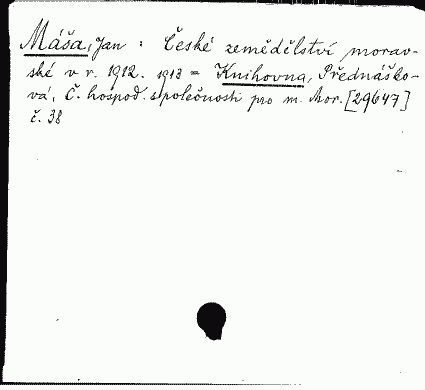 Máša, Jan : České zemědělství morav-
ské v r. 1912. 1913 = Knihovna, Přednáško-
vá, Č. hospod. společnosti pro m. Mor. [29647]
č. 38